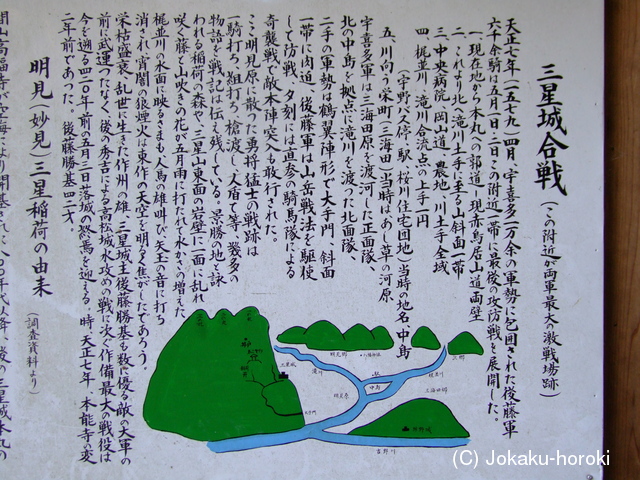 三星城合戦（この附近が両軍最大の激戦場跡）
天正七年（一五七九）四月、宇喜多二万余の軍勢に包囲された後藤軍
六千余騎は五月一日・二日とこの附近一帯に最後の攻防戦を展開した。
一、現在地から本丸への郭道（現赤鳥居山道両壁
二、これより北へ滝川土手に至る山斜面一帯
三、中央病院、岡山道、農地、川土手全域
四、梶並川、滝川合流点の上手一円
（宇野バス停、駅、桜川住宅団地）当時の地名、中島
五、川向う栄町（三海田）当時はあし草の河原
宇喜多軍は三海田原を渡河した正面隊、
北の中島を拠点に滝川を渡った北面隊、
二手の軍勢は鶴翼陣形で大手門、斜面
一帯に肉迫、後藤軍は山岳戦法を駆使
して防戦、夕刻には直参の騎馬隊による
奇襲戦、敵本陣突入も敢行された。
ここ明見原に散った勇将猛士の戦跡は
一騎打ち、組打ち、槍渡し、人盾で等、幾多の
物語を戦記は伝え残している。景勝の地と詠
われる稲荷の森や、三星山東面の岩壁に一面に乱れ
咲く藤と山吹きの花が五月雨に打たれて水かさの増えた
梶並川の水面に映るさまも人馬の雄叫び矢玉の音に打ち
消され、宵闇の狼煙火は東作の天空を明るく焦がしたであろう。
栄枯盛衰、乱世に生きた作州の雄、三星城主後藤勝基も数に優る敵の大軍の
前に武運つたなく、後の秀吉による高松城水攻めの戦に次ぐ作備最大の戦役は
今を遡る四二〇年前の五月二日落城の終焉を迎える。時、天正七年、本能寺の変
二年前であった。　後藤勝基四二才。
明見（妙見）三星稲荷の由来
（調査資料より）
滝川
中島
吉野川
(C) Jokaku-horoki